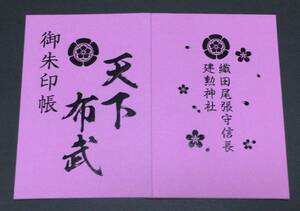 織田尾張守信長
建勲神社
天下
布武
御朱印帳